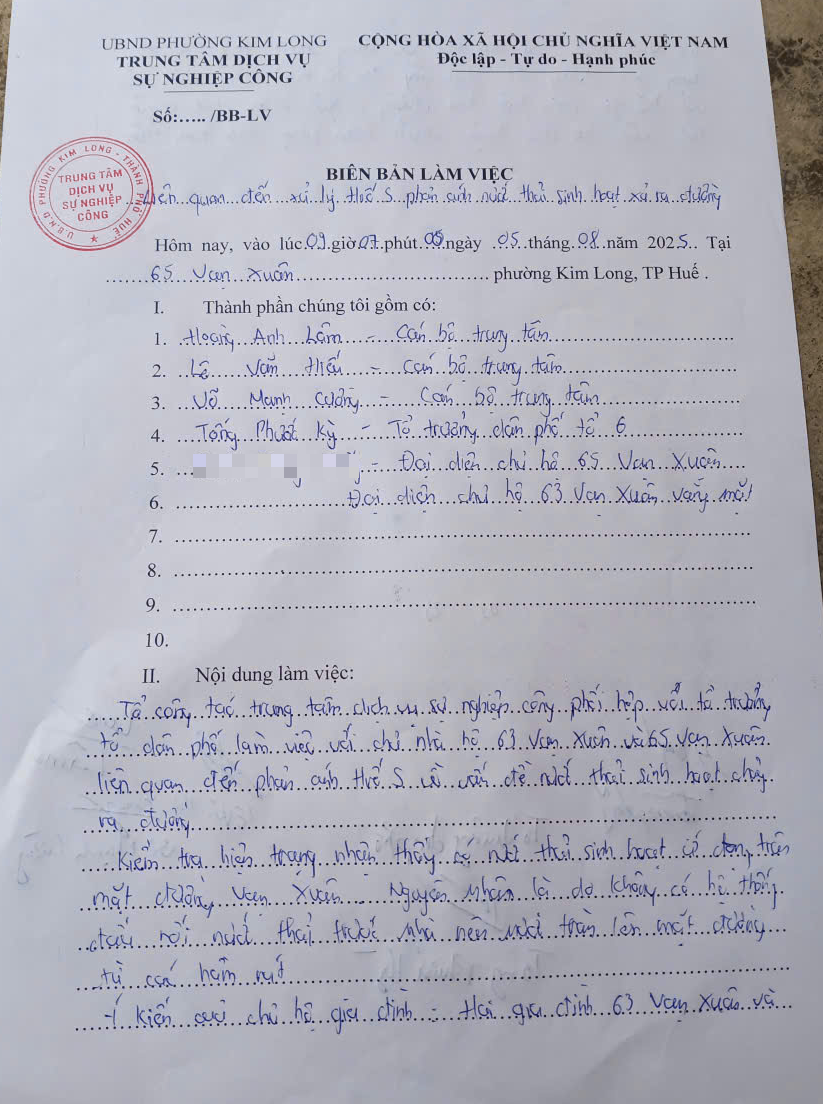 UBND PHƯỜNG KIM LONG
TRUNG TÂM DỊCH VỤ
SỰ NGHIỆP CÔNG
CỘNG HÒA XÃ HỘI CHỦ NGHĨA VIỆT NAM
Độc lập - Tự do - Hạnh phúc
Số:..... /BB-LV
U.B.N.D PHƯỜNG KIM LONG - THÀNH PHỐ HUẾ
TRUNG TÂM
DỊCH VỤ
SỰ NGHIỆP
CÔNG
BIÊN BẢN LÀM VIỆC
Liên quan đến xử lý Huế S phản ánh nước thải sinh hoạt xả ra đường
Hôm nay, vào lúc 09 giờ 07 phút, ngày 05 tháng 08 năm 2025. Tại
65 Vạn Xuân phường Kim Long, TP Huế .
I. Thành phần chúng tôi gồm có:
1. Hoàng Anh Lâm - Cán bộ trung tâm
2. Lê Văn Hiếu - Cán bộ trung tâm
3. Võ Mạnh Cường - Cán bộ trung tâm
4. Tống Phước Kỳ - Tổ trưởng dân phố tổ 6
5. - Đại diện chủ hộ 65 Vạn Xuân
6. Đại diện chủ hộ 63 Vạn Xuân vắng mặt
7.
8.
9.
10.
II. Nội dung làm việc:
Tổ công tác trung tâm dịch vụ sự nghiệp công phối hợp với tổ trưởng
tổ dân phố làm việc với chủ nhà hộ 63 Vạn Xuân và 65 Vạn Xuân
liên quan đến phản ánh Huế S về vấn đề nước thải sinh hoạt chảy
ra đường
Kiểm tra hiện trạng nhận thấy có nước thải sinh hoạt ứ đọng trên
mặt đường Vạn Xuân. Nguyên nhân là do không có hệ thống
đấu nối nước thải trước nhà nên nước tràn lên mặt đường
từ các hầm rút
- Ý kiến của chủ hộ gia đình : Hai gia đình 63 Vạn Xuân và